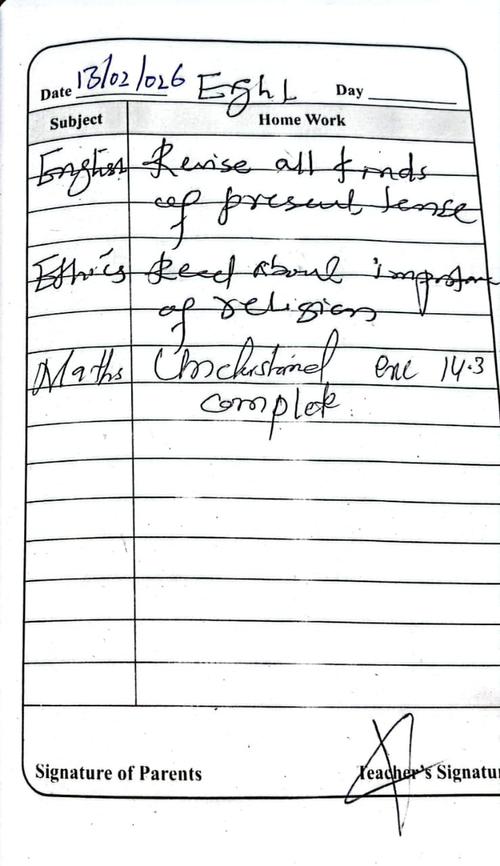 Date 13/02/026 Eght Day
Subject Home Work
English Revise all kinds
of present tense
Ethics Read about importan
of religion
Maths Understand exe 14.3
complete
Signature of Parents Teacher's Signatu